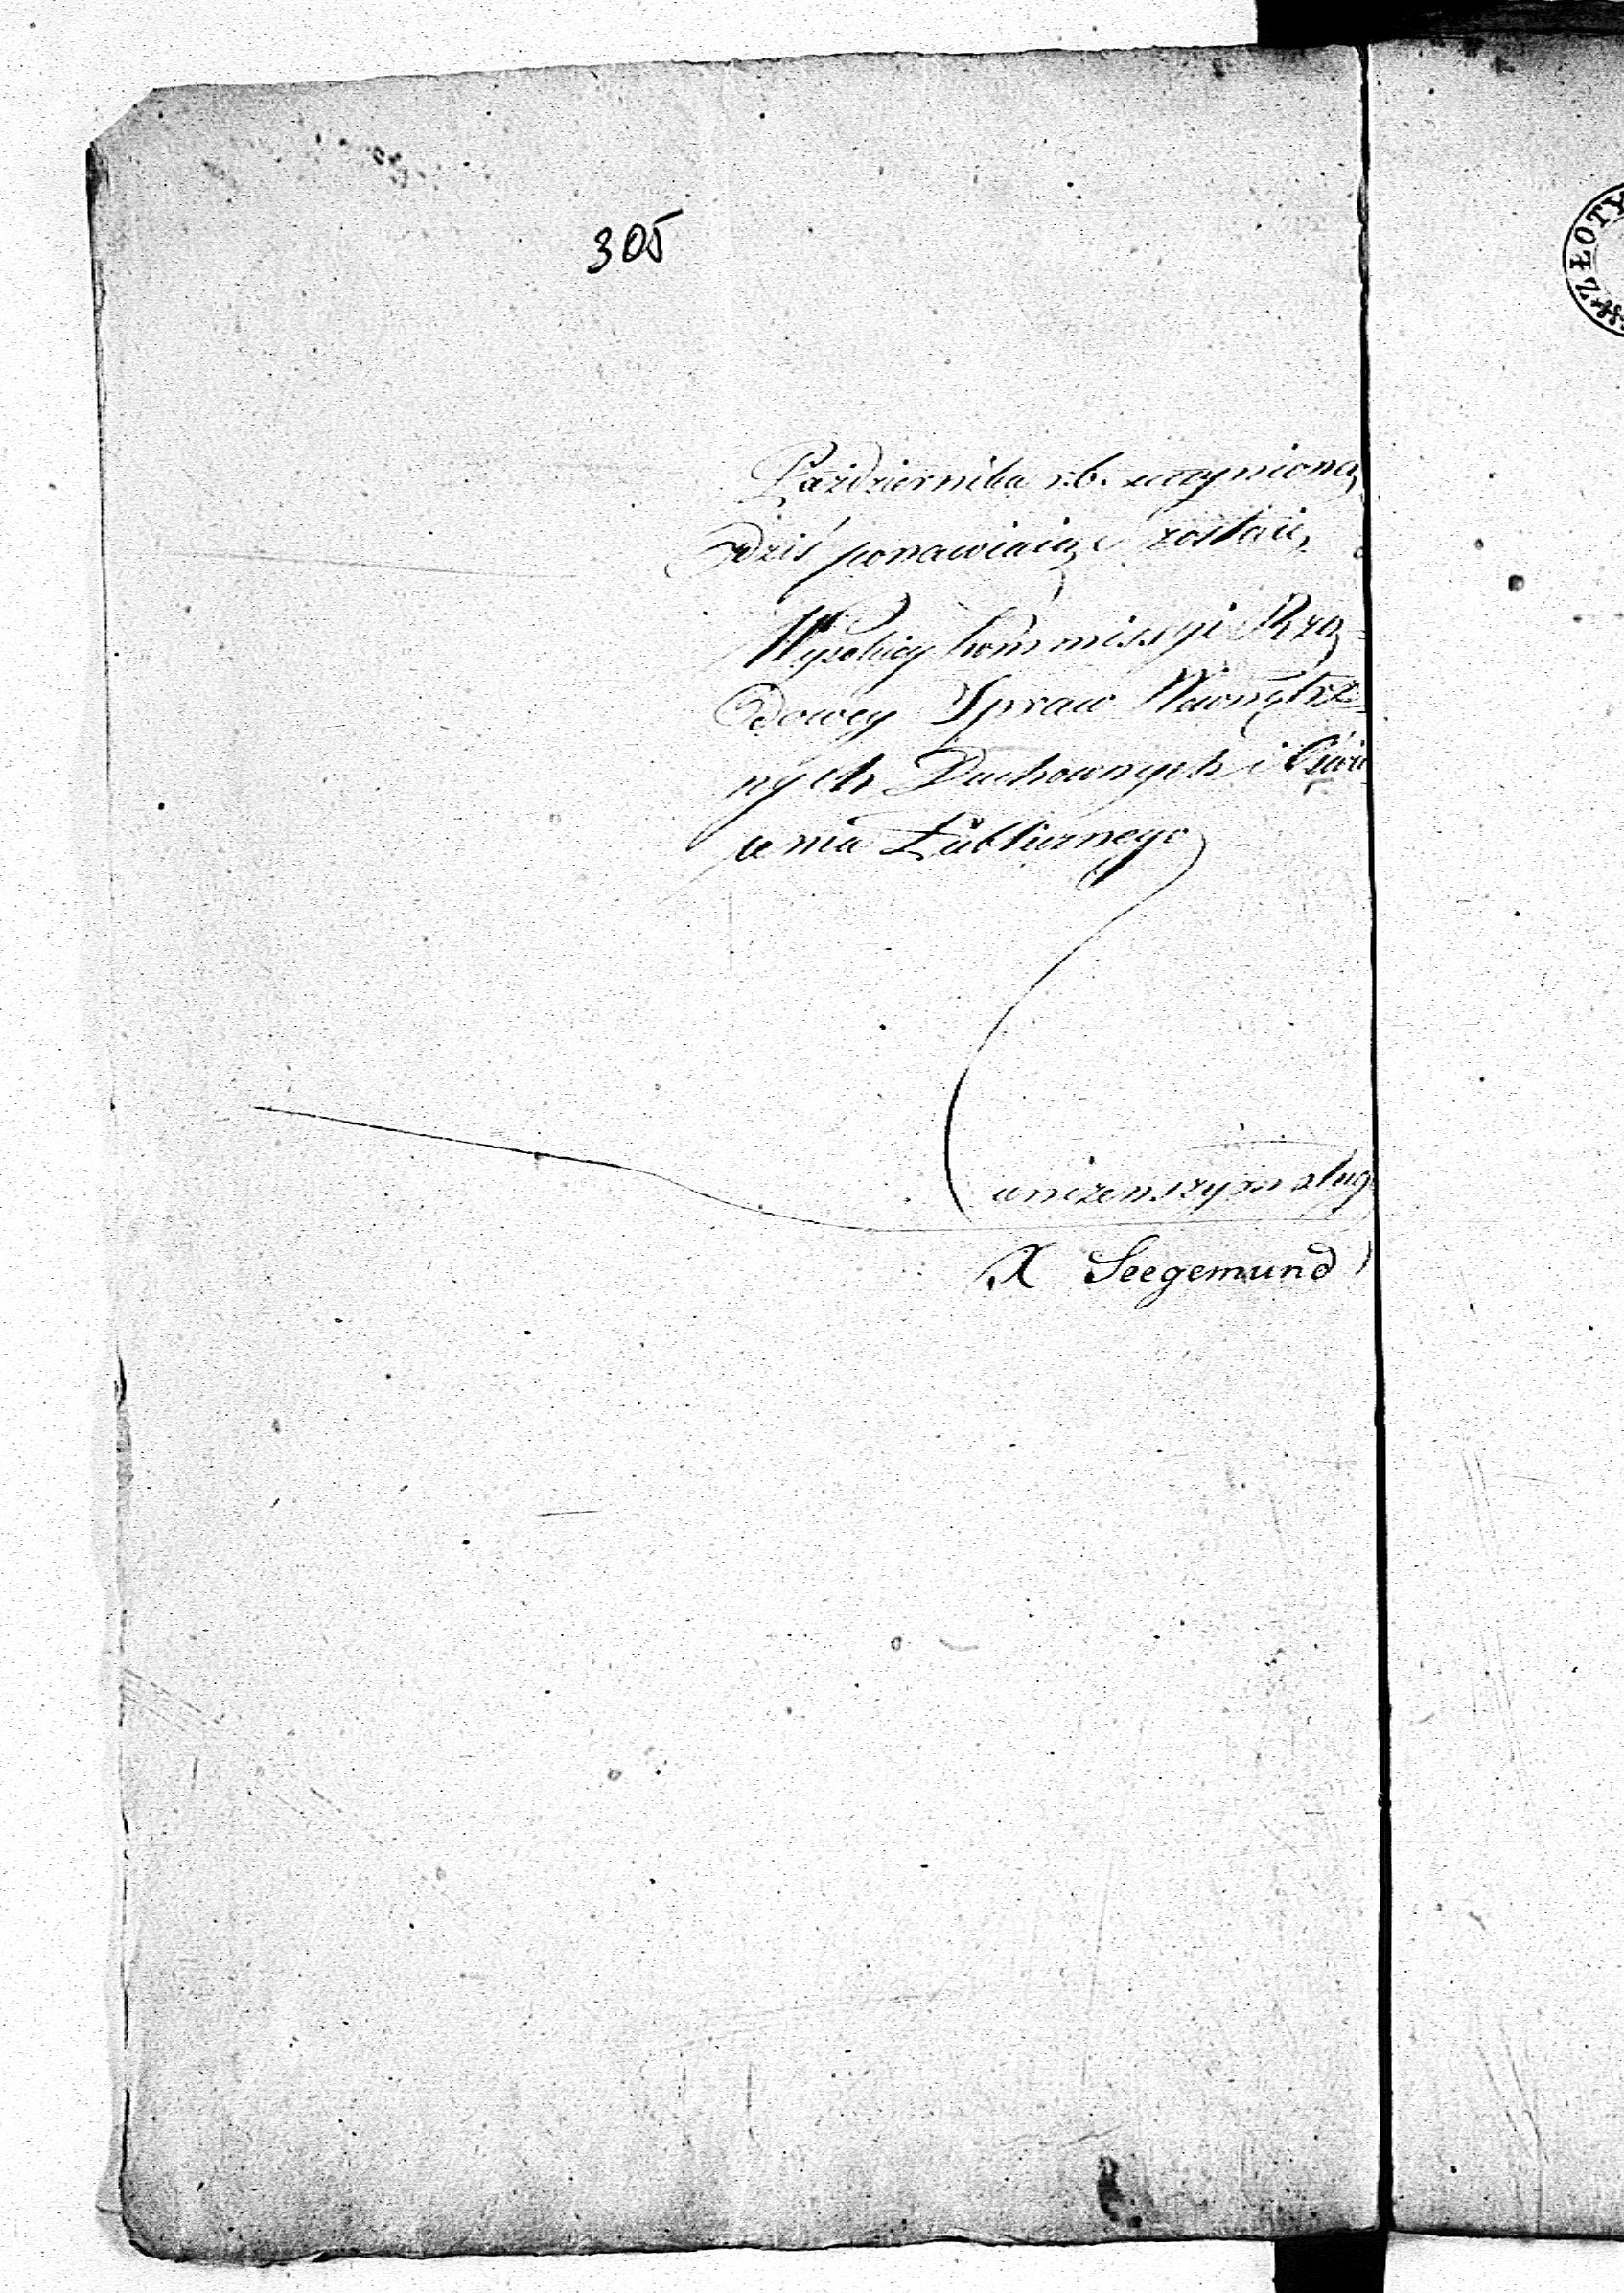 305
Października r.b. uczynioną
dziś ponawiaiąc zostaię
Wysokiey Kommissyi Rzą
dowey Spraw Wewnętrz
nych Duchownych i Oświe
cenia Publicznego
uniżenszym sług
X Seegemund
ZŁOTY